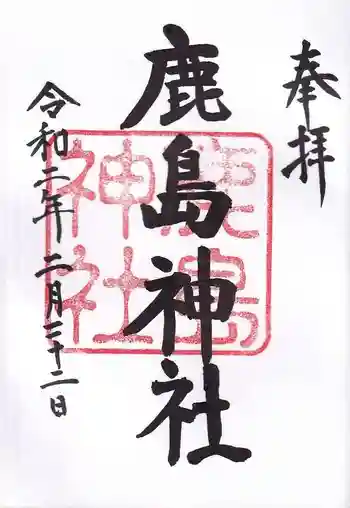 奉拝
鹿島神社
令和二年二月二十二日
鹿島神社